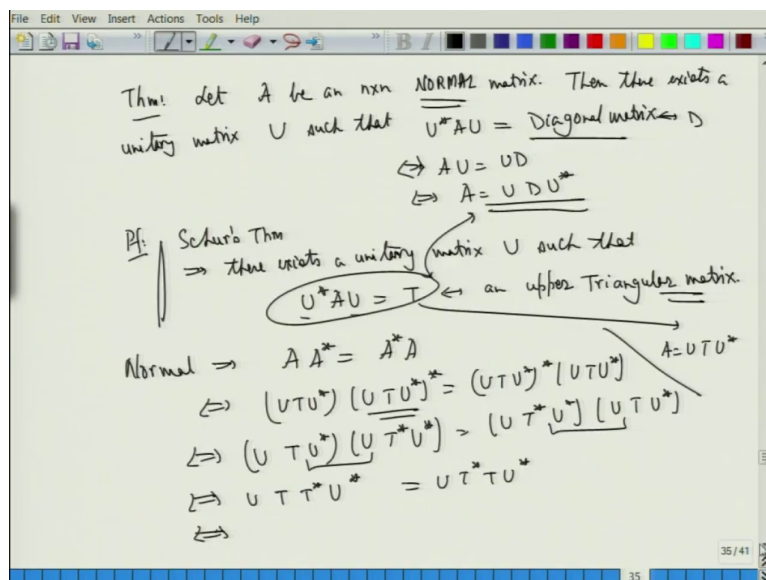 File Edit View Insert Actions Tools Help
Thm: Let A be an nxn NORMAL matrix. Then there exists a
unitary matrix U such that U*AU = Diagonal matrix ↔ D
⇔ AU = UD
⇔ A = U D U*
Pf: Schur's Thm
⇒ there exists a unitary matrix U such that
U*AU = T ← an upper Triangular matrix.
A = U T U*
Normal ⇒ A A* = A* A
⇔ (UTU*) (UTU*)* = (UTU*)* (UTU*)
⇔ (U T U*) (U T* U*) = (U T* U*) (U T U*)
⇔ U T T* U* = U T* T U*
⇔
35/41
35